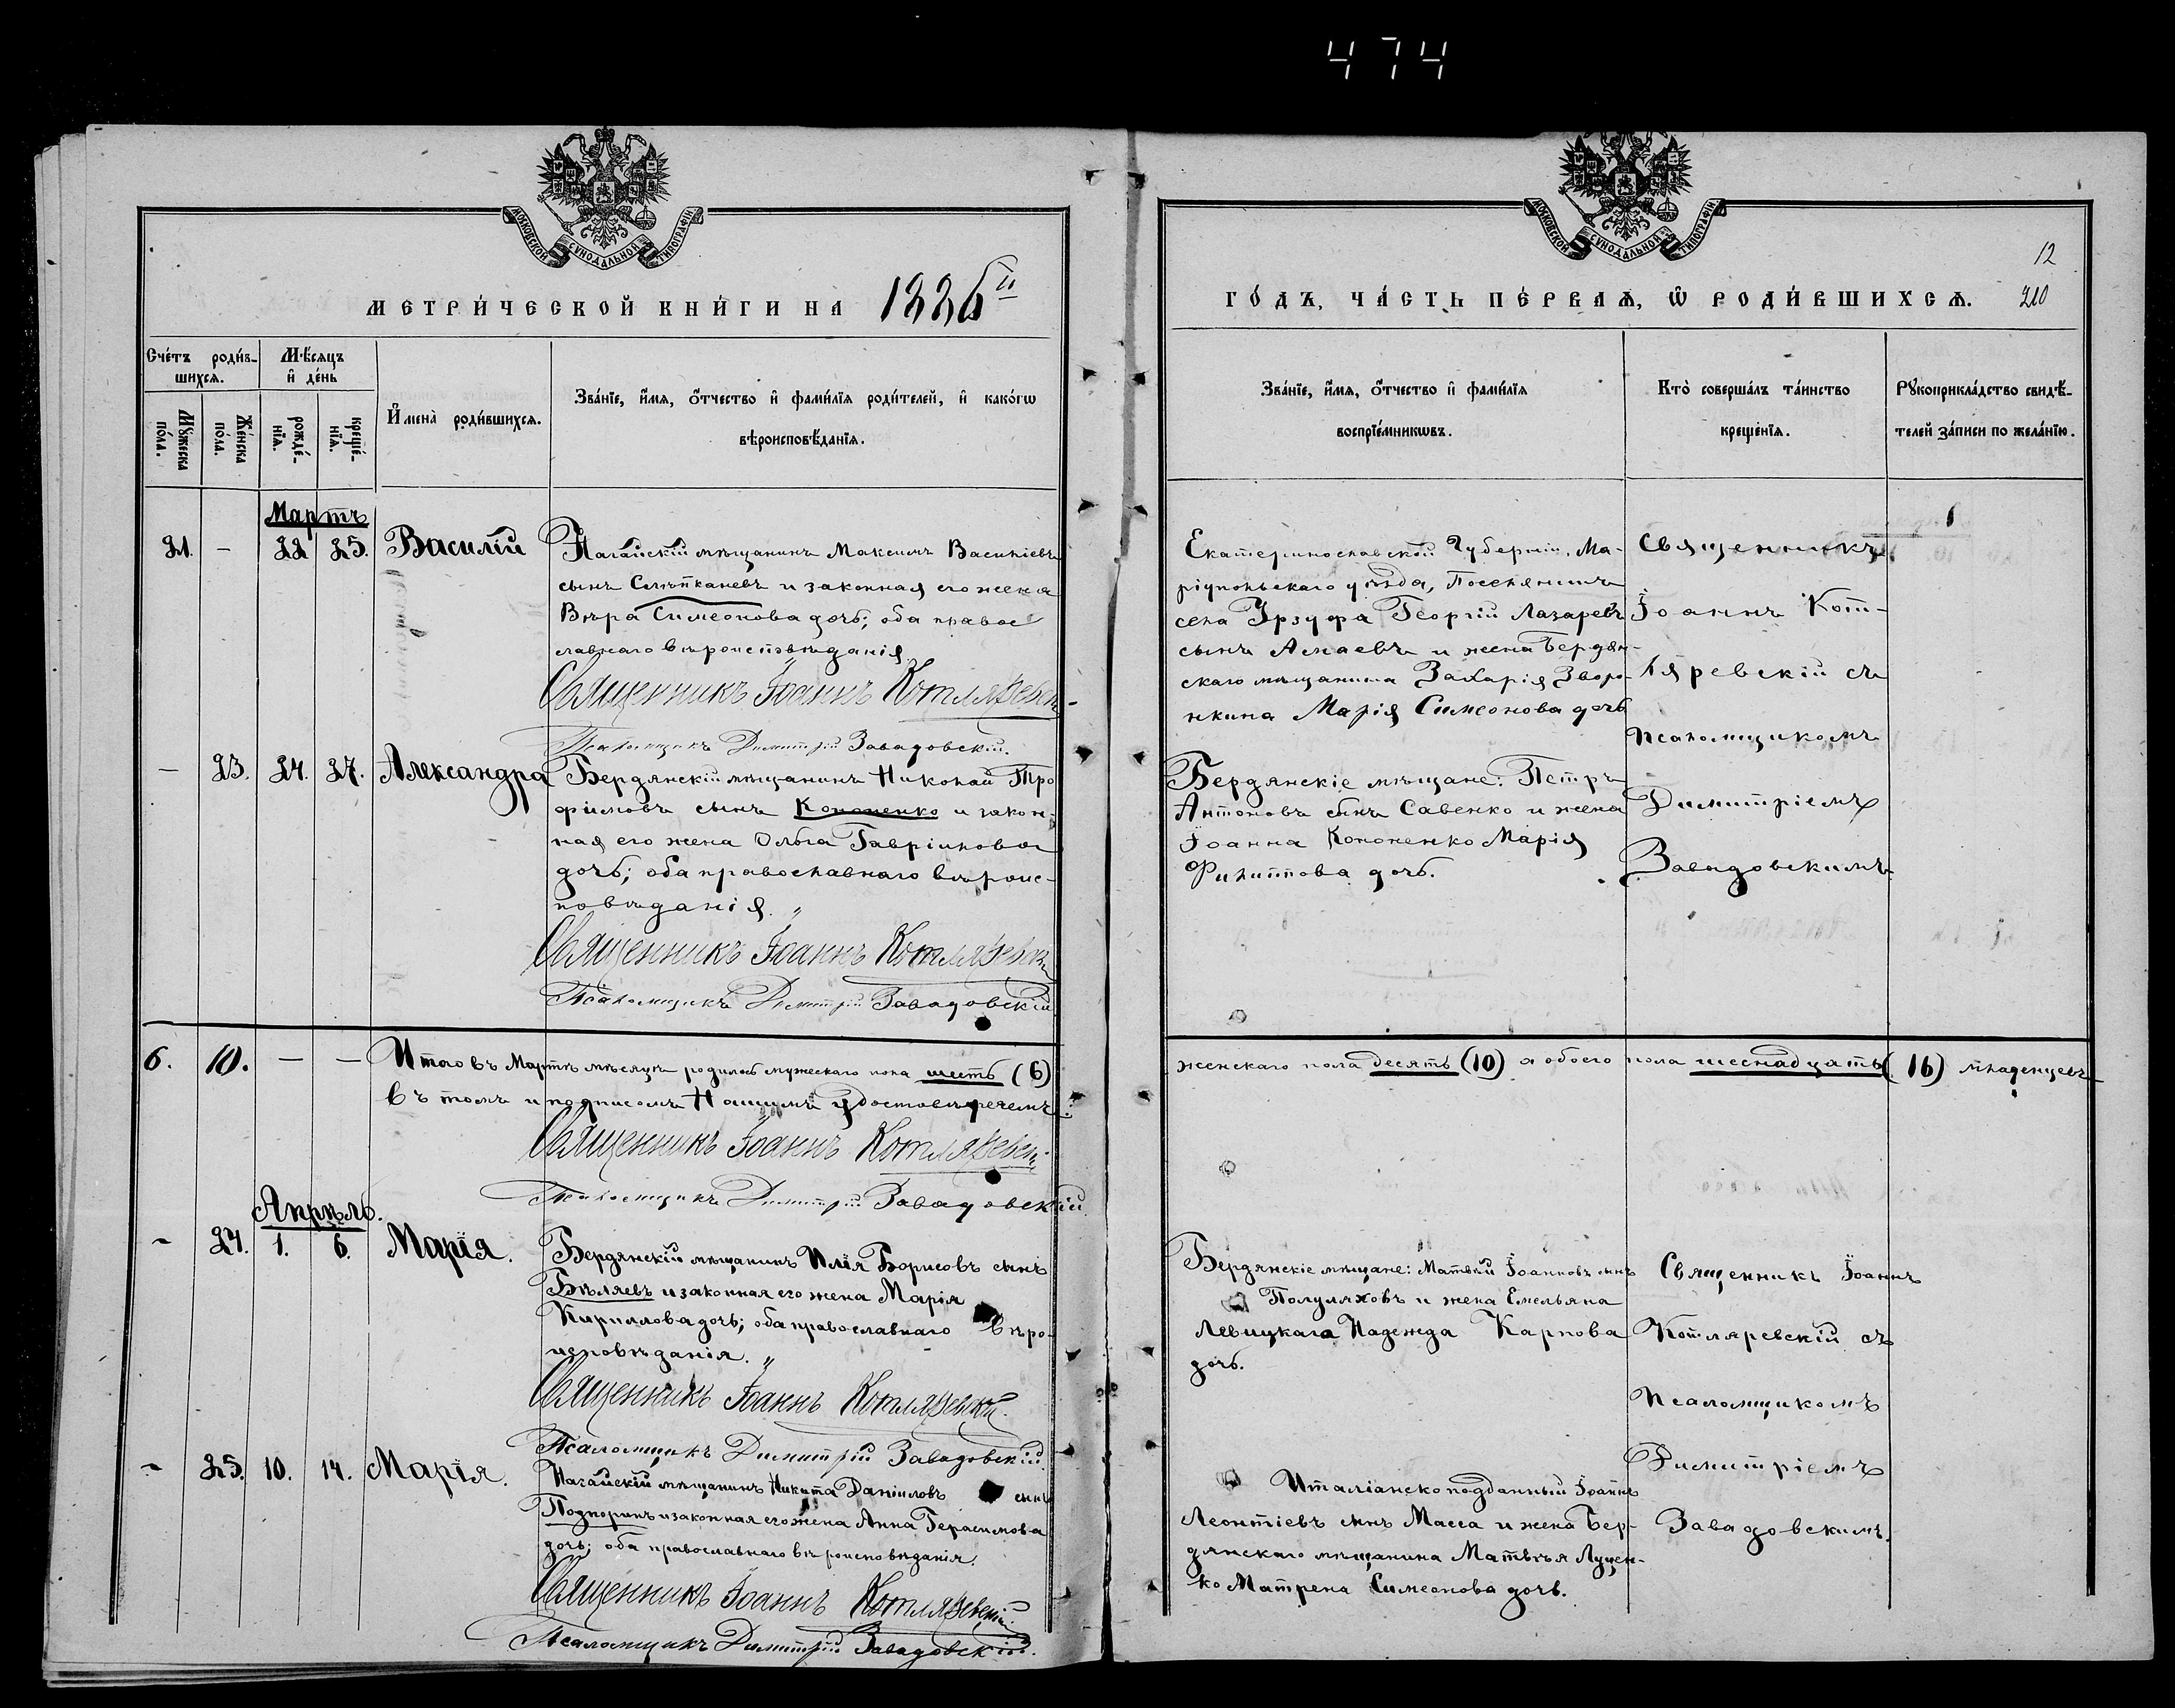 474
МОСКОВСКОЙ СѴНОДАЛЬНОЙ ТИПОГРАФІИ
МЕТРИ́ЧЕСКОЙ КНИ́ГИ НА 1886й
Сче́тъ роди́в-
шихсѧ.
Мѣ́сѧцъ
и҆ де́нь
Мꙋ́жеска
по́ла.
Же́нска
по́ла.
рожде́-
нїѧ.
креще́-
нїѧ.
И҆мена̀ роди́вшихсѧ.
Зва́нїе, и҆́мѧ, ѻ҆́тчество и҆ фами́лїѧ роди́телей, и҆ како́гѡ
вѣроисповѣ́данїѧ.
Мартъ
21. - 22 25. Василій
Нагайскій мѣщанинъ Максимъ Васильевъ
сынъ и законная его жена
Вѣра Симеонова дочь; оба правос
лавнаго вѣроисповѣданія
Священникъ Іоаннъ Котляревск
Псаломщикъ Димитрій Завадовскій.
- 23. 24. 27. Александра
Бердянскій мѣщанинъ Николай Тро
фимовъ сынъ Кононенко и закон-
ная его жена Ольга Гавріилова
дочь; оба православнаго вѣроис-
повѣданія. „
Священникъ Іоаннъ Котляревскі
Псаломщикъ Димитрій Завадовскій
6. 10. — — Итого въ Мартѣ мѣсяцѣ родилось мужескаго пола шесть (6)
Въ томъ и подписомъ Нашимъ удостовѣряемъ:
Священникъ Іоаннъ Котляревск
Псаломщикъ Димитрій Завадовскій
Апрѣль.
- 24. 1. 6. Марія.
Бердянскій мѣщанинъ Илія Борисовъ сынъ
Бѣляевъ и законная его жена Марія
Кириллова дочь; оба православнаго вѣро-
исповѣданія. „
Священникъ Іоаннъ Котляревскій.
Псаломщикъ Димитрій Завадовскій.
- 25. 10. 14. Марія.
Нагайскій мѣщанинъ Никита Даніиловъ сынъ
Подпоринъ и законная его жена Анна Герасимова
дочь; оба православнаго вѣроисповѣданія.
Священникъ Іоаннъ Котляревскій.
Псаломщикъ Димитрій Завадовскій.
МОСКОВСКОЙ СѴНОДАЛЬНОЙ ТИПОГРАФІИ
12
ГО́ДЪ, ЧА́СТЬ ПЕ́РВАѦ, Ѡ҆ РОДИ́ВШИХСѦ. 210
Зва́нїе, и҆́мѧ, ѻ҆́тчество и҆ фами́лїѧ
воспрїе́мникѡвъ.
Кто̀ соверша́лъ та́инство
креще́нїѧ.
Рꙋкоприкла́дство свидѣ́-
телей за́писи по жела́нїю.
Екатеринославской Губерніи, Ма-
ріупольскаго уѣзда, Поселянинъ
села Урзуфа Георгій Лазаревъ
сынъ Асмаевъ и жена Бердян-
скаго мѣщанина Захарія Зворы-
нкина Марія Симеонова дочь
Священникъ
Іоаннъ Кот-
ляревскій съ
псаломщикомъ
Димитріемъ
Завадовскимъ.
Бердянскіе мѣщане: Петръ
Антоновъ сынъ Савенко и жена
Іоанна Кононенко Марія
Филиппова дочь.
женскаго пола десять (10) а обоего пола шеснадцать (16) младенцевъ
Бердянскіе мѣщане: Матвѣй Іоанновъ сынъ
Полуляховъ и жена Емельяна
Левицкаго Надежда Карпова
дочь.
Священникъ Іоаннъ
Котляревскій съ
псаломщикомъ
Димитріемъ
Завадовскимъ.
Италіанскоподданный Іоаннъ
Леонтіевъ сынъ Масса и жена Бер-
дянскаго мѣщанина Матвѣя Луцен-
ко Матрена Симеонова дочь.